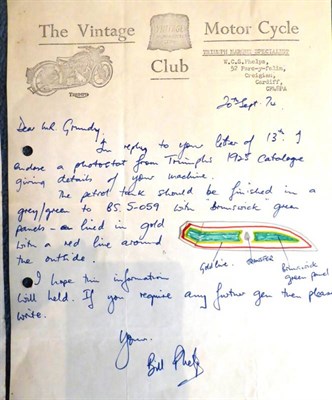 The Vintage Motor Cycle
Club
TRIUMPH
TRIUMPH MARQUE SPECIALIST
W.C.G. Phelps,
52 Parc-y-felin,
Creigiau,
Cardiff,
20th Sept. 74
Dear Mr. Grundy,
In reply to your letter of 13th. I
enclose a photostat from Triumph's 1925 Catalogue
giving details of your machine.
The petrol tank should be finished in a
grey/green to BS. 5-059 with Brunswick green
panels – lined in gold
with a red line around
the outside.
Gold line. TRANSFER Brunswick
green panel
I hope this information
will held. If you require any further gen then please
write.
Yours.
Bill Phelps